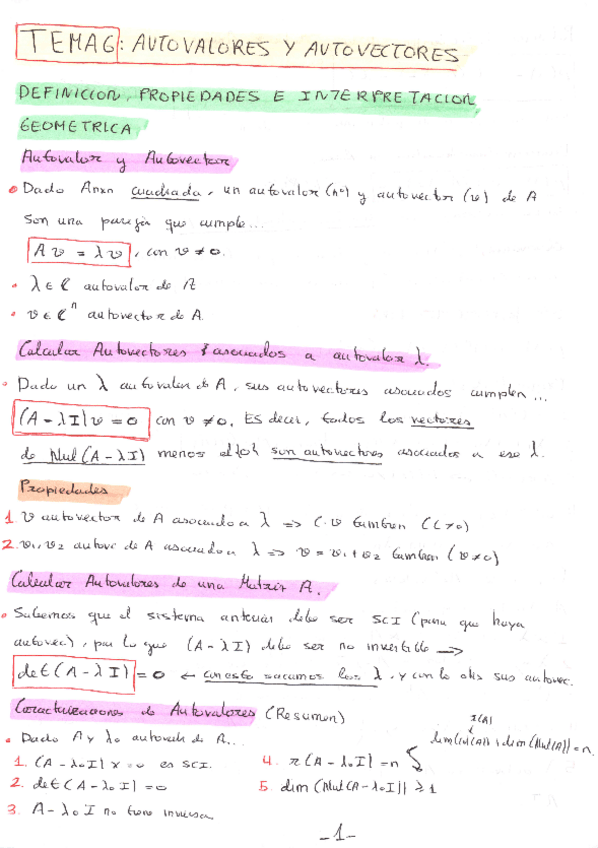 TEMA6: AUTOVALORES Y AUTOVECTORES
DEFINICION, PROPIEDADES E INTERPRETACION
GEOMETRICA
Autovalor y Autovector
• Dado Anxn cuadrada, un autovalor (nº) y autovector (v) de A
son una pareja que cumple...
Av = λv, con v ≠ 0.
• λ ∈ ℂ autovalor de A
• v ∈ ℂⁿ autovector de A.
Calcular Autovectores asociados a autovalor λ.
• Dado un λ autovalor de A, sus autovectores asociados cumplen...
(A - λI)v = 0 con v ≠ 0. Es decir, todos los vectores
de Nul(A - λI) menos el {0} son autovectores asociados a ese λ.
Propiedades
1. v autovector de A asociado a λ => C·v tambien (C≠0)
2. v₁, v₂ autove de A asociado a λ => v = v₁+v₂ tambien (v≠0)
Calcular Autovalores de una Matriz A.
• Sabemos que el sistema anterior debe ser SCI (para que haya
autovec), por lo que (A - λI) debe ser no invertible →
det(A - λI) = 0 ← con esto sacamos los λ, y con lo otro sus autovec.
Caracterizaciones de Autovalores (Resumen)
r(A)
• Dado A y λ₀ autovalor de A...
dim(Col(A)) + dim(Nul(A)) = n.
1. (A - λ₀I)x = 0 es SCI.
4. r(A - λ₀I) = n
2. det(A - λ₀I) = 0
5. dim(Nul(A - λ₀I)) ≥ 1
3. A - λ₀I no tiene inversa
-1-